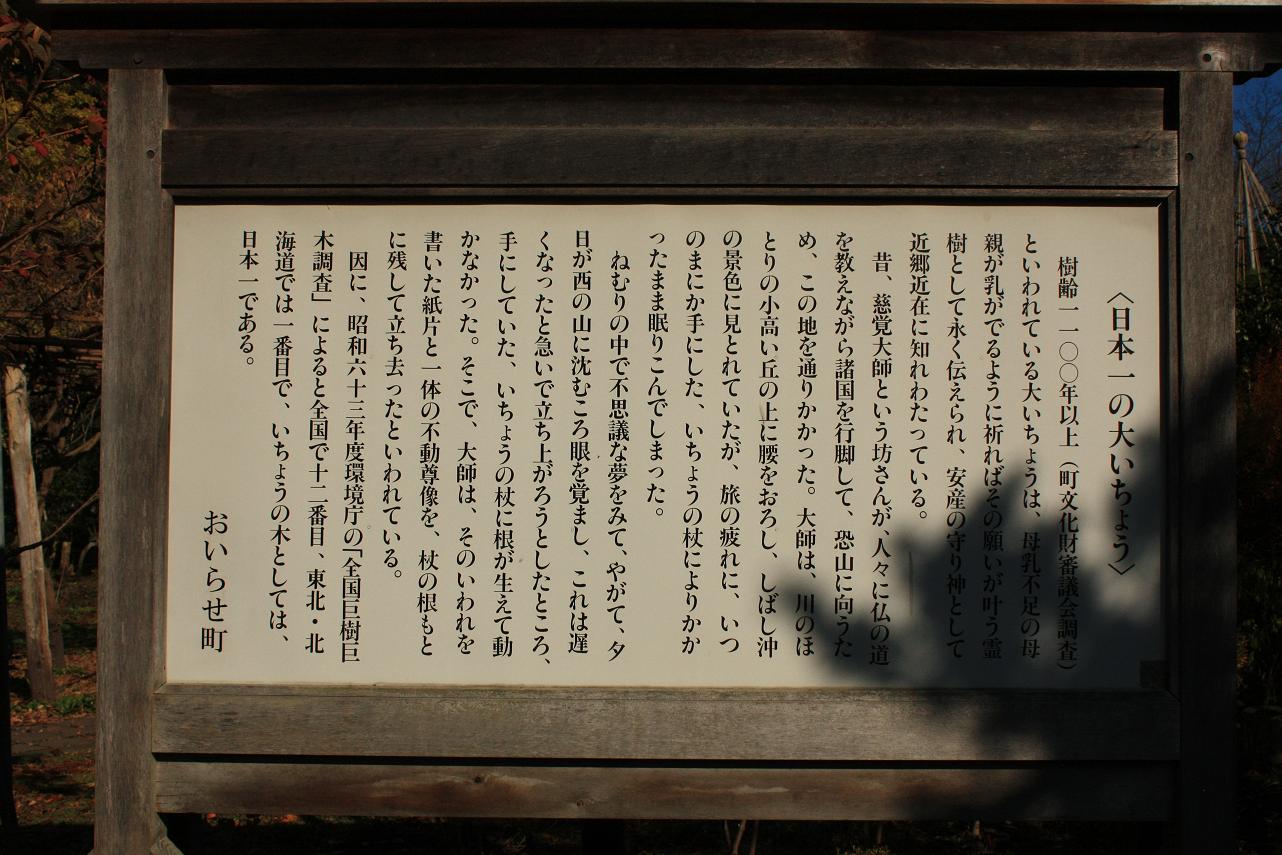 〈日本一の大いちょう〉
樹齢一一〇〇年以上（町文化財審議会調査）
といわれている大いちょうは、母乳不足の母
親が乳がでるように祈ればその願いが叶う霊
樹として永く伝えられ、安産の守り神として
近郷近在に知れわたっている。
昔、慈覚大師という坊さんが、人々に仏の道
を教えながら諸国を行脚して、恐山に向うた
め、この地を通りかかった。大師は、川のほ
とりの小高い丘の上に腰をおろし、しばし沖
の景色に見とれていたが、旅の疲れに、いつ
のまにか手にした、いちょうの杖によりかか
ったまま眠りこんでしまった。
ねむりの中で不思議な夢をみて、やがて、夕
日が西の山に沈むころ眼を覚まし、これは遅
くなったと急いで立ち上がろうとしたところ、
手にしていた、いちょうの杖に根が生えて動
かなかった。そこで、大師は、そのいわれを
書いた紙片と一体の不動尊像を、杖の根もと
に残して立ち去ったといわれている。
因に、昭和六十三年度環境庁の「全国巨樹巨
木調査」によると全国で十二番目、東北・北
海道では一番目で、いちょうの木としては、
日本一である。
おいらせ町